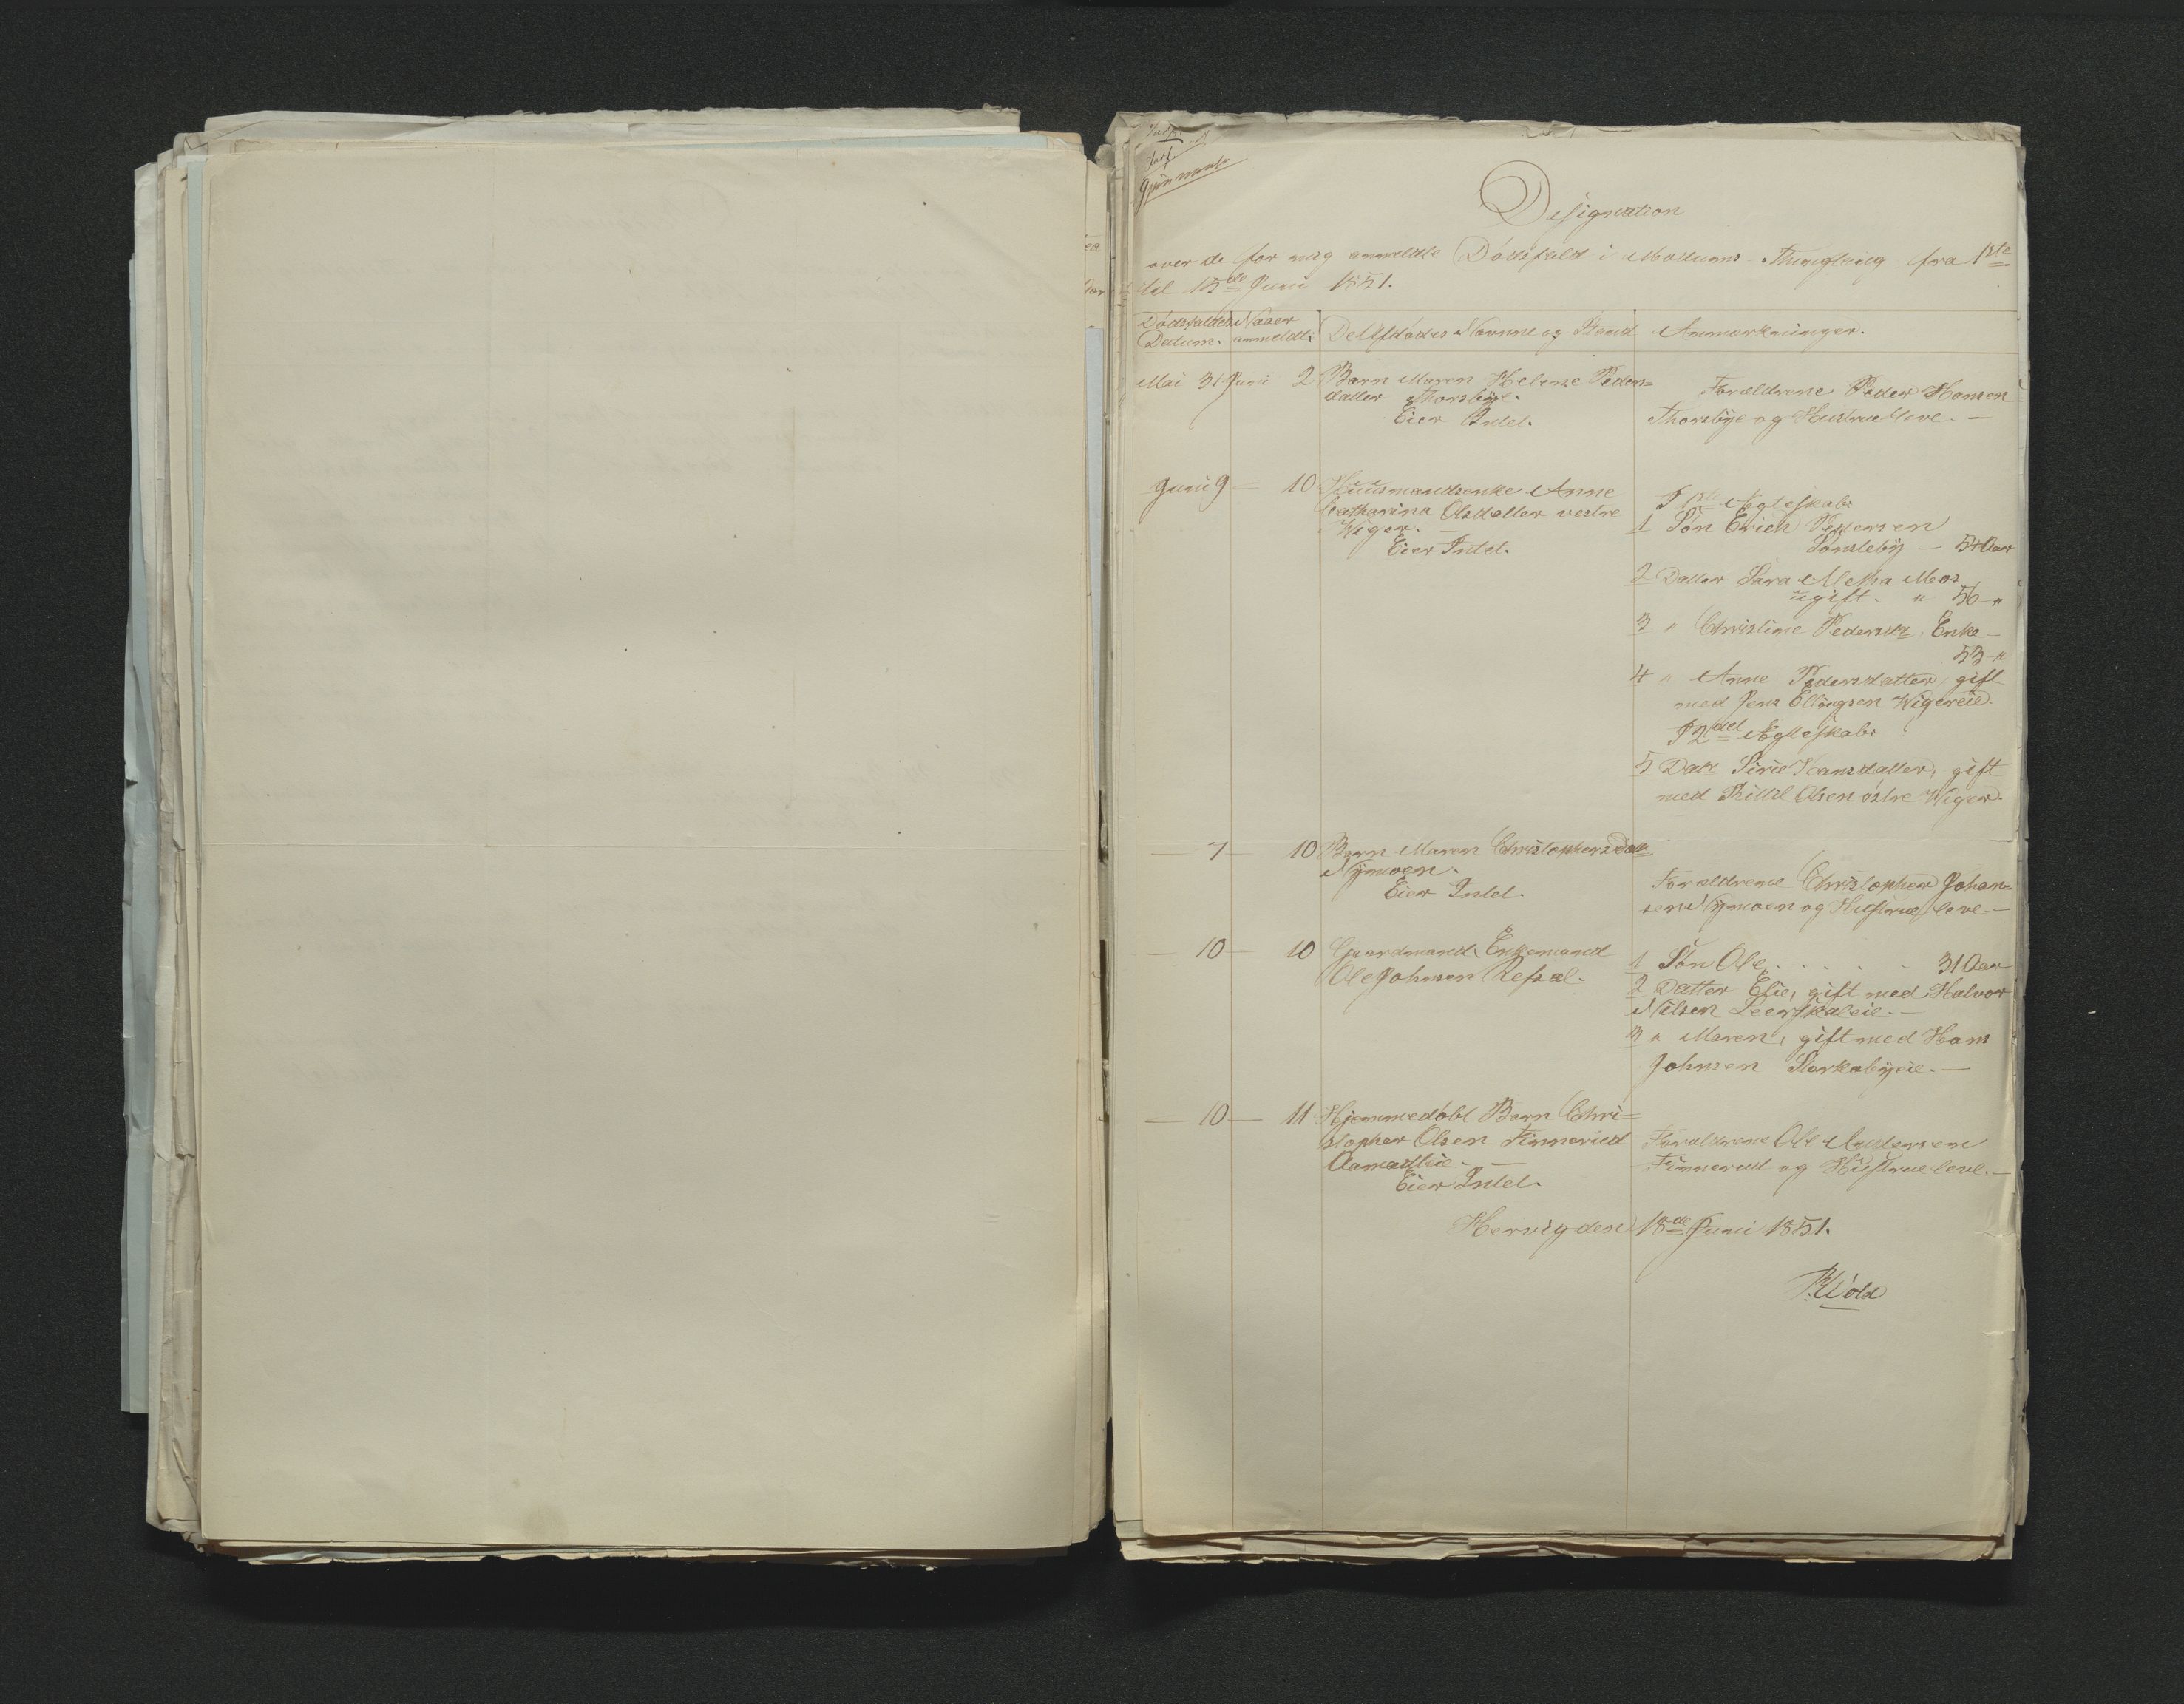 Designation
over de for mig anmeldte Dødsfald i Modums Thinglaug fra 1ste
til 15de Juni 1851.
Dødsfaldets Datum. Naaer anmeldt. Den Afdødes Navnne og Stand Anmærkninger.
Mai 31 Juni 2 Barn Maren Helene Peders=
datter Thorsbye.
Eier Intet.
Forældrene Peder Hansen
Thorsbye og Hustrue leve. —
Juni 9 — 10 Huusmandsenke Anne
Catharina Olsdatter vestre
Wiger. —
Eier Intet.
I 1ste Ægteskab:
1 Søn Erich Pedersen
Sønsteby — 54 Aar
2 Datter Sara Mos
ugift. " 56 "
3 " Christine Pedersdr Enke —
53 "
4 " Anne Pedersdatter, gift
med Jens Ellingsen Wigereie.
I 2det Ægteskab:
5 Datr Sirie Hansdatter, gift
med Kittil Olsen østre Wiger.
— 7 — 10 Barn Maren Christophersdatr
Nymoen.
Eier Intet.
Forældrene Christopher Johan=
sen Nymoen og Hustrue leve. —
— 10 — 10 Gaardmand, Enkemand
Ole Johnsen Refsal.
1 Søn Ole . . . . . 31 Aar
2 Datter Elie, gift med Halvor
Nilsen Leerskaleie. —
3 " Maren, gift med Hans
Johnsen Storkabyeie. —
— 10 — 11 Hjemmedøbt Barn Chri=
stopher Olsen Finnerud
Aamodteie. —
Eier Intet.
Forældrene Ole Andersen
Finnerud og Hustrue leve. —
Hervig den 18de Juni 1851.